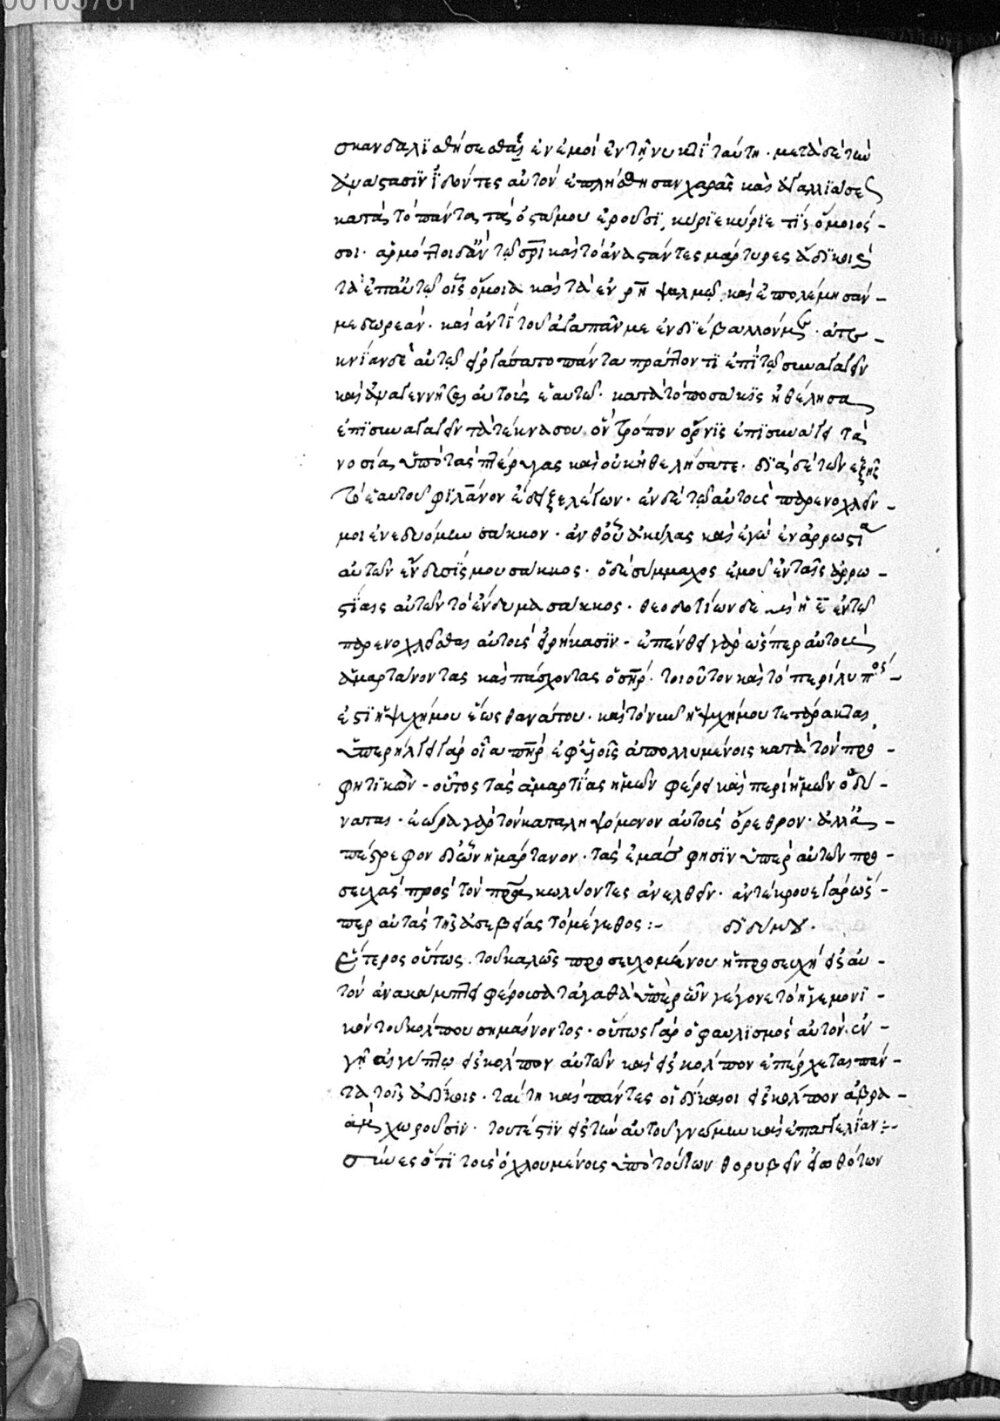 σκανδαλϊσθήσεσθαι ἐν ἐμοὶ ἐν τῇ νυκτὶ ταύτη. μετὰ δὲ τὴν
ἀνάστασϊν ἰδόντες αὐτὸν ἐπλήσθησαν χαρᾶς καὶ ἀγαλλιάσε
κατὰ τὸ πάντα τὰ ὀστᾶ μου ἐροῦσϊ, κύρϊε κύρϊε τίς ὅμοιός
σοι. ἁρμόττοι δ' ἂν τῷ σρι καὶ τὸ ἀναστάντες μάρτυρες ἄδϊκοι καὶ
τὰ ἐπ' αὐτῷ οἷς ὅμοια καὶ τὰ ἐν ρη ψαλμῷ, καὶ ἐπολέμησάν-
με δωρεάν. καὶ ἀντὶ τοῦ ἀγαπᾶν με ἐνδϊέβαλλόν με.
αὐτῷ εἰργάσαντο πάντα πράττοντϊ ἐπὶ τῷ συναγαγεῖν
καὶ ἀναγεννῆσαι αὐτοὺς ἑαυτῷ. κατὰ τὸ ποσάκϊς ἠθέλησα
ἐπϊσυναγαγεῖν τὰ τέκνα σου ὃν τρόπον ὄρνϊς ἐπϊσυνάγει τὰ
νοσία ὑπὸ τὰς πτέρυγας καὶ οὐκ ἠθελήσατε. δϊὰ δὲ τῶν ἑξῆς
τὸ ἑαυτοῦ φϊλανον ἐδείξε λέγων. ἐν δὲ τῷ αὐτοὺς παρενοχλεῖν-
μοι ἐνεδυόμην σάκκον. ἀνθ' οὗ ἀκύλας καὶ ἐγὼ ἐν ἀρρωστία
αὐτῶν ἔνδυσίς μου σάκκος. ὁ δὲ σύμμαχος ἐμοῦ ἐν ταῖς ἀρρω-
στίαις αὐτῶν τὸ ἔνδυμα σάκκος. θεοδοτίων δὲ ἐν τῷ
παρενοχλεῖσθαι αὐτοὺς εἰρήκασϊν. ἐπένθει γὰρ ὥσπερ αὐτοὺς
ἁμαρτάνοντας καὶ πάσχοντας ὁ σηρ. τοιοῦτον καὶ τὸ περίλυπος
ἐστϊν ἡ ψυχή μου ἕως θανάτου. καὶ τὸ νῦν ἡ ψυχή μου τετάρακται,
ὑπερήλγει γὰρ οἷα πηρ ἐφ' υἱοῖς ἀπολλυμένοις κατὰ τὸν προ-
φητϊκὸν. οὗτος τὰς ἁμαρτίας ἡμῶν φέρει καὶ περὶ ἡμῶν ὀδυ-
νᾶται. ἑώρα γὰρ τὸν καταληψόμενον αὐτοὺς ὄλεθρον. ἀλλ' ἃ-
πέστρεφον δι' ὧν ἡμάρτανον. τὰς ἐμὰς φησϊν ὑπὲρ αὐτῶν προ-
σευχὰς πρὸς τὸν πρα κωλύοντες ἀνελθεῖν. ἀντέκρουε γὰρ ὥσ-
περ αὐτὰς τῆς ἀσεβείας τὸ μέγεθος :- δϊδύμου.
Ἕτερος οὕτως. τοῦ καλῶς προσευχομένου ἡ προσευχὴ εἰς αὐ-
τὸν ἀνακάμπτει φέρουσα τἀγαθὰ ὑπὲρ ὧν γέγονε τὸ ἡγεμονϊ-
κὸν τοῦ κόλπου σημαίνοντος. οὕτως γὰρ ὁ φαυλϊσμὸς αὐτῶν ἐν
γῇ αἰγύπτω εἰς κόλπον αὐτῶν καὶ εἰς κόλπον ἐπέρχεται πάν-
τα τοῖς ἀδίκοις. ταύτη καὶ πάντες οἱ δίκαιοι εἰς κόλπον ἀβρα-
ὰμ χωροῦσϊν. τουτέστϊν εἰς τὴν αὐτοῦ γνώμην καὶ ἐπαγγελίαν:-
τινες ὅτϊ τοῖς ὀχλουμένοις ὑπὸ τούτων θορυβεῖν εἰωθότων